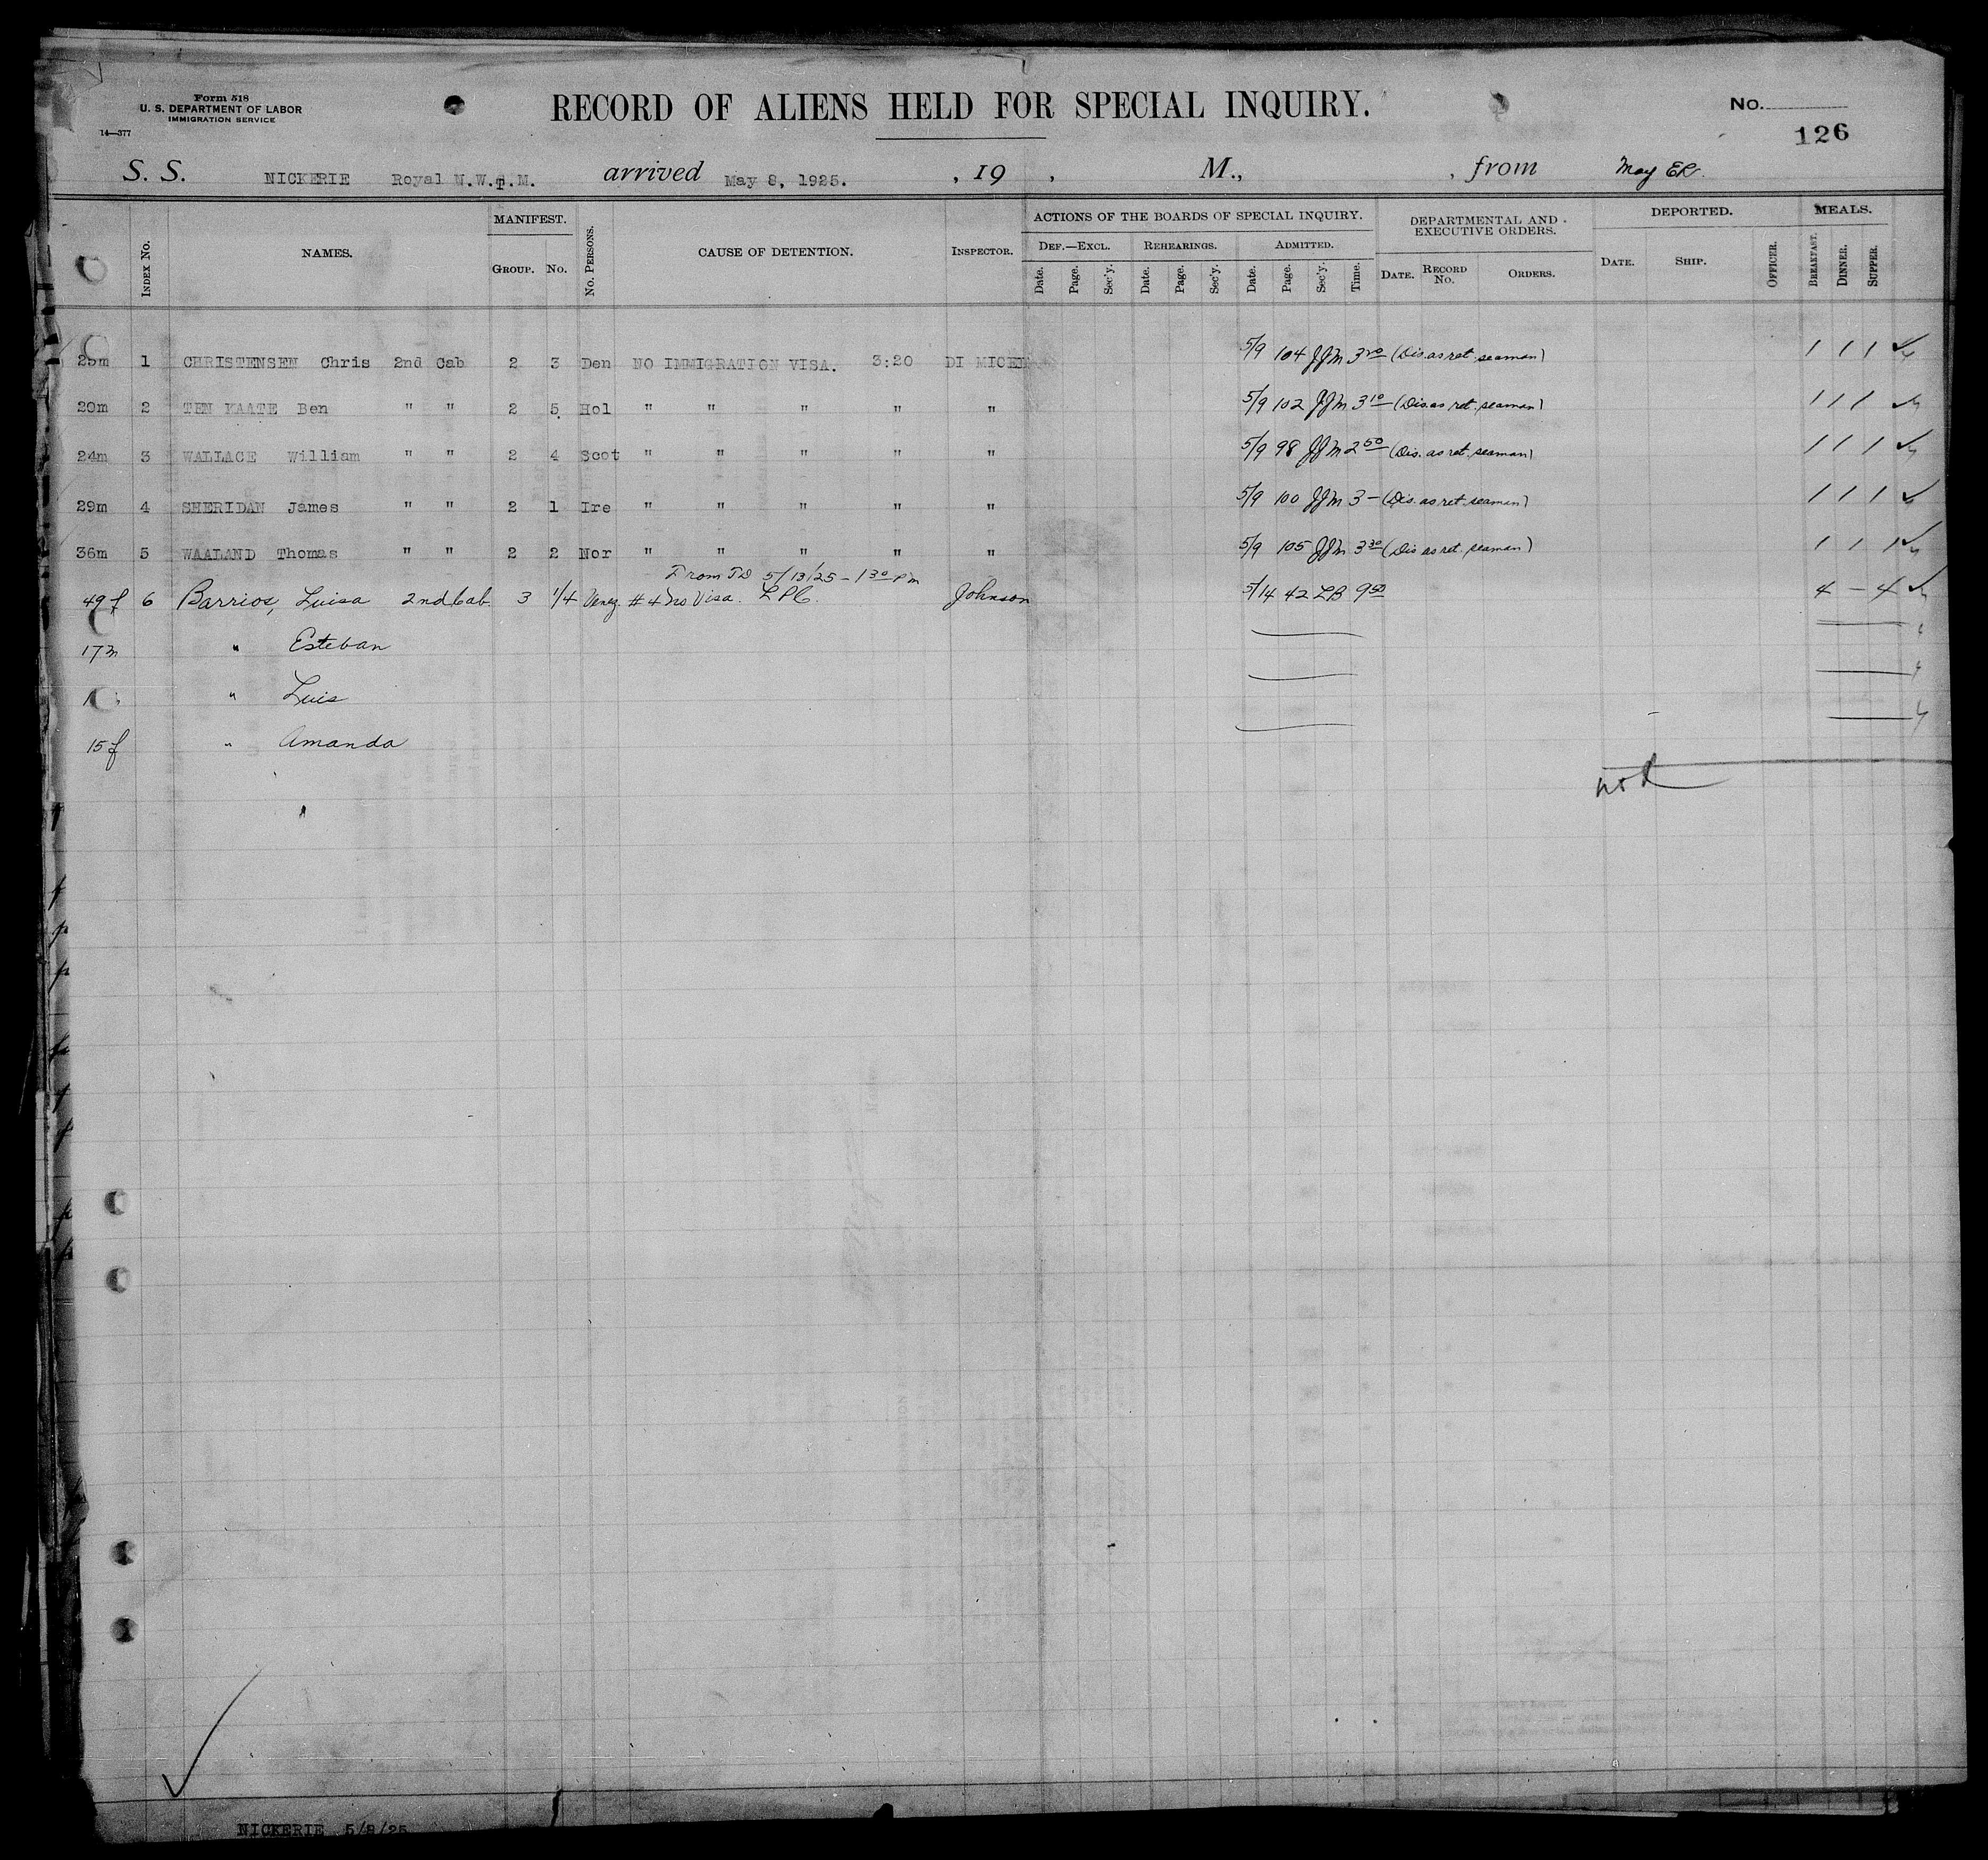 Form 518
U. S. DEPARTMENT OF LABOR
IMMIGRATION SERVICE
14—377
RECORD OF ALIENS HELD FOR SPECIAL INQUIRY.
No.
126
S. S. NICKERIE Royal N.W.I.M. arrived May 8, 1925. , 19 , M., , from May ER.
INDEX No. NAMES. MANIFEST. GROUP. No. No. PERSONS. CAUSE OF DETENTION. INSPECTOR. ACTIONS OF THE BOARDS OF SPECIAL INQUIRY. DEF.—EXCL. Date. Page. Sec'y. REHEARINGS. Date. Page. Sec'y. ADMITTED. Date. Page. Sec'y. Time. DEPARTMENTAL AND EXECUTIVE ORDERS. DATE. RECORD No. ORDERS. DEPORTED. DATE. SHIP. OFFICER. MEALS. BREAKFAST. DINNER. SUPPER.
1 CHRISTENSEN Chris 2nd Cab 2 3 Den NO IMMIGRATION VISA. 3:20 DI MICEL 5/9 104 JJM 3 20 (Dis. as ret. seaman) 1 1 1
20m 2 TEN KAATE Ben " " 2 5 Hol " " " " " 5/9 102 JJM 3 10 (Dis. as ret. seaman) 1 1 1
24m 3 WALLACE William " " 2 4 Scot " " " " " 5/9 98 JJM 2 50 (Dis. as ret. seaman) 1 1 1
29m 4 SHERIDAN James " " 2 1 Ire " " " " " 5/9 100 JJM 3 — (Dis. as ret. seaman) 1 1 1
36m 5 WAALAND Thomas " " 2 2 Nor " " " " " 5/9 105 JJM 3 30 (Dis as ret. seaman) 1 1 1
From TD 5/13/25 - 1 30 Pm
49 f 6 Barrios, Luisa 2nd Cab. 3 1/4 Venez. #4 no Visa. LPC. Johnson 5/14 42 LB 9 50 4 — 4
17 m " Esteban
" Luis
15 f " Amanda
NICKERIE 5/8/25